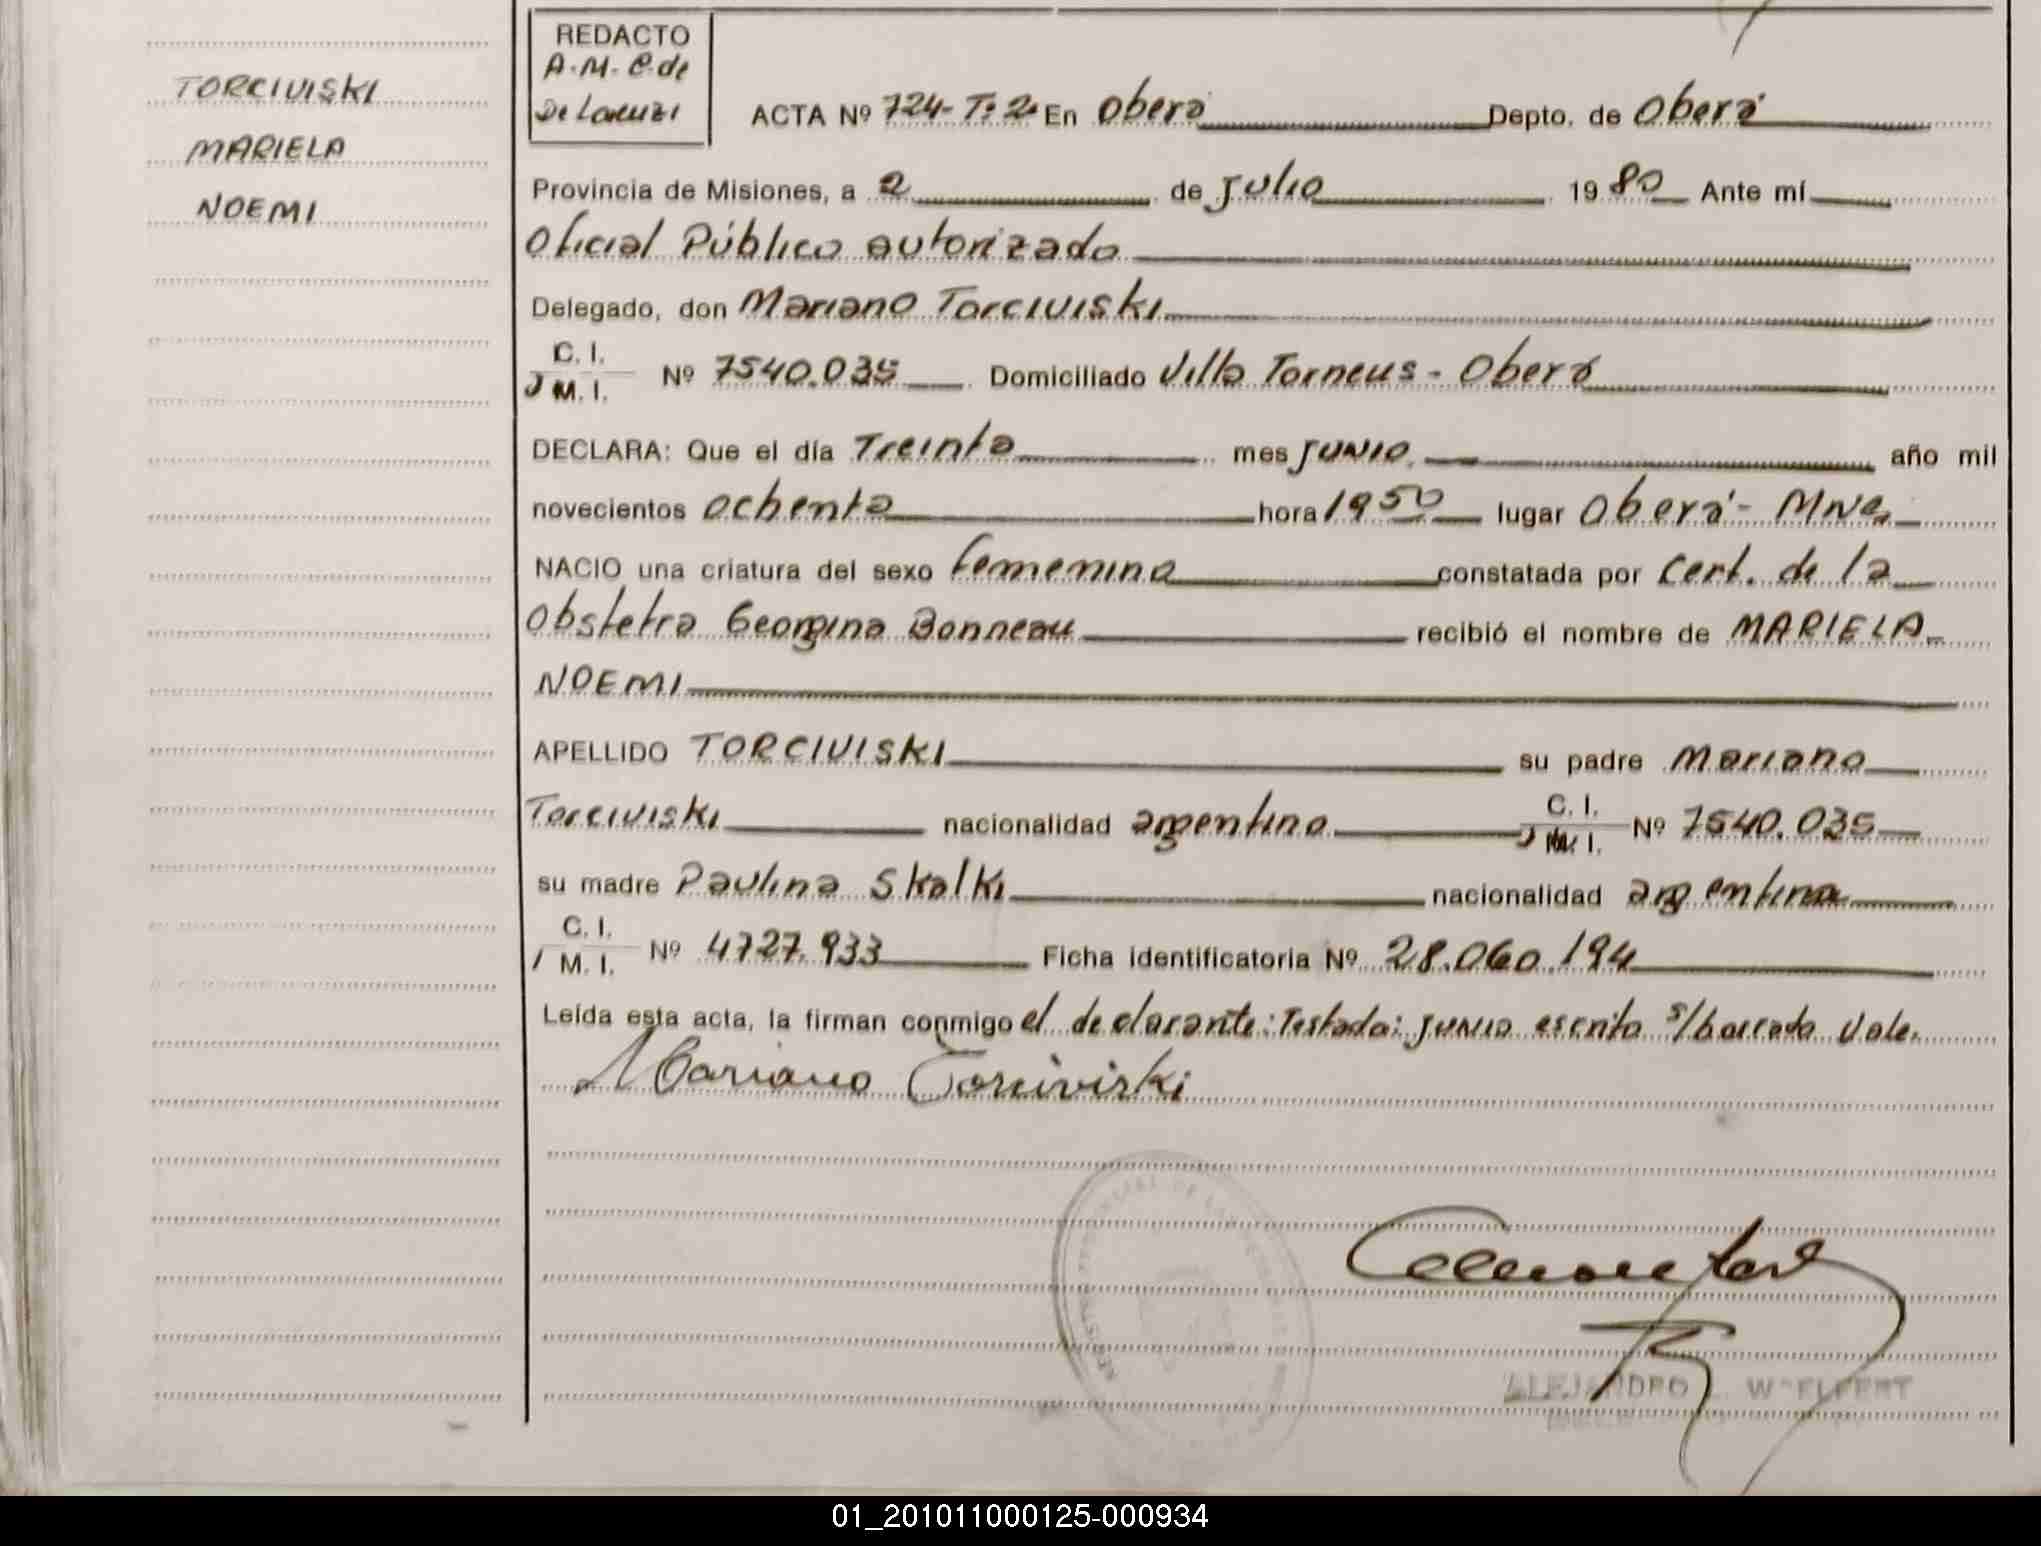 TORCIVISKI
MARIELA
NOEMI
REDACTO
A.M.C. de
De Lorenzi
ACTA Nº 724- Tº 2º En Oberá Depto. de Oberá
Provincia de Misiones, a 2 de Julio 19 80 Ante mí
Oficial Público autorizado
Delegado, don Mariano Torciviski
C. I.
M. I. Nº 7540.035 Domiciliado Villa Torneus - Oberá
DECLARA: Que el día Treinta mes JUNIO año mil
novecientos ochenta hora 19 50 lugar Oberá - Mnes
NACIO una criatura del sexo femenino constatada por Cert. de la
Obstetra Georgina Bonneau recibió el nombre de MARIELA
NOEMI
APELLIDO TORCIVISKI su padre Mariano
Torciviski nacionalidad argentina C. I. M. I. Nº 7540.035
su madre Paulina Skalki nacionalidad argentina
C. I.
M. I. Nº 4727.933 Ficha identificatoria Nº 28.060.194
Leída esta acta, la firman conmigo el declarante: Testado: junio escrito s/borrado Vale.
Mariano Torciviski
ALEJANDRO
01_201011000125-000934